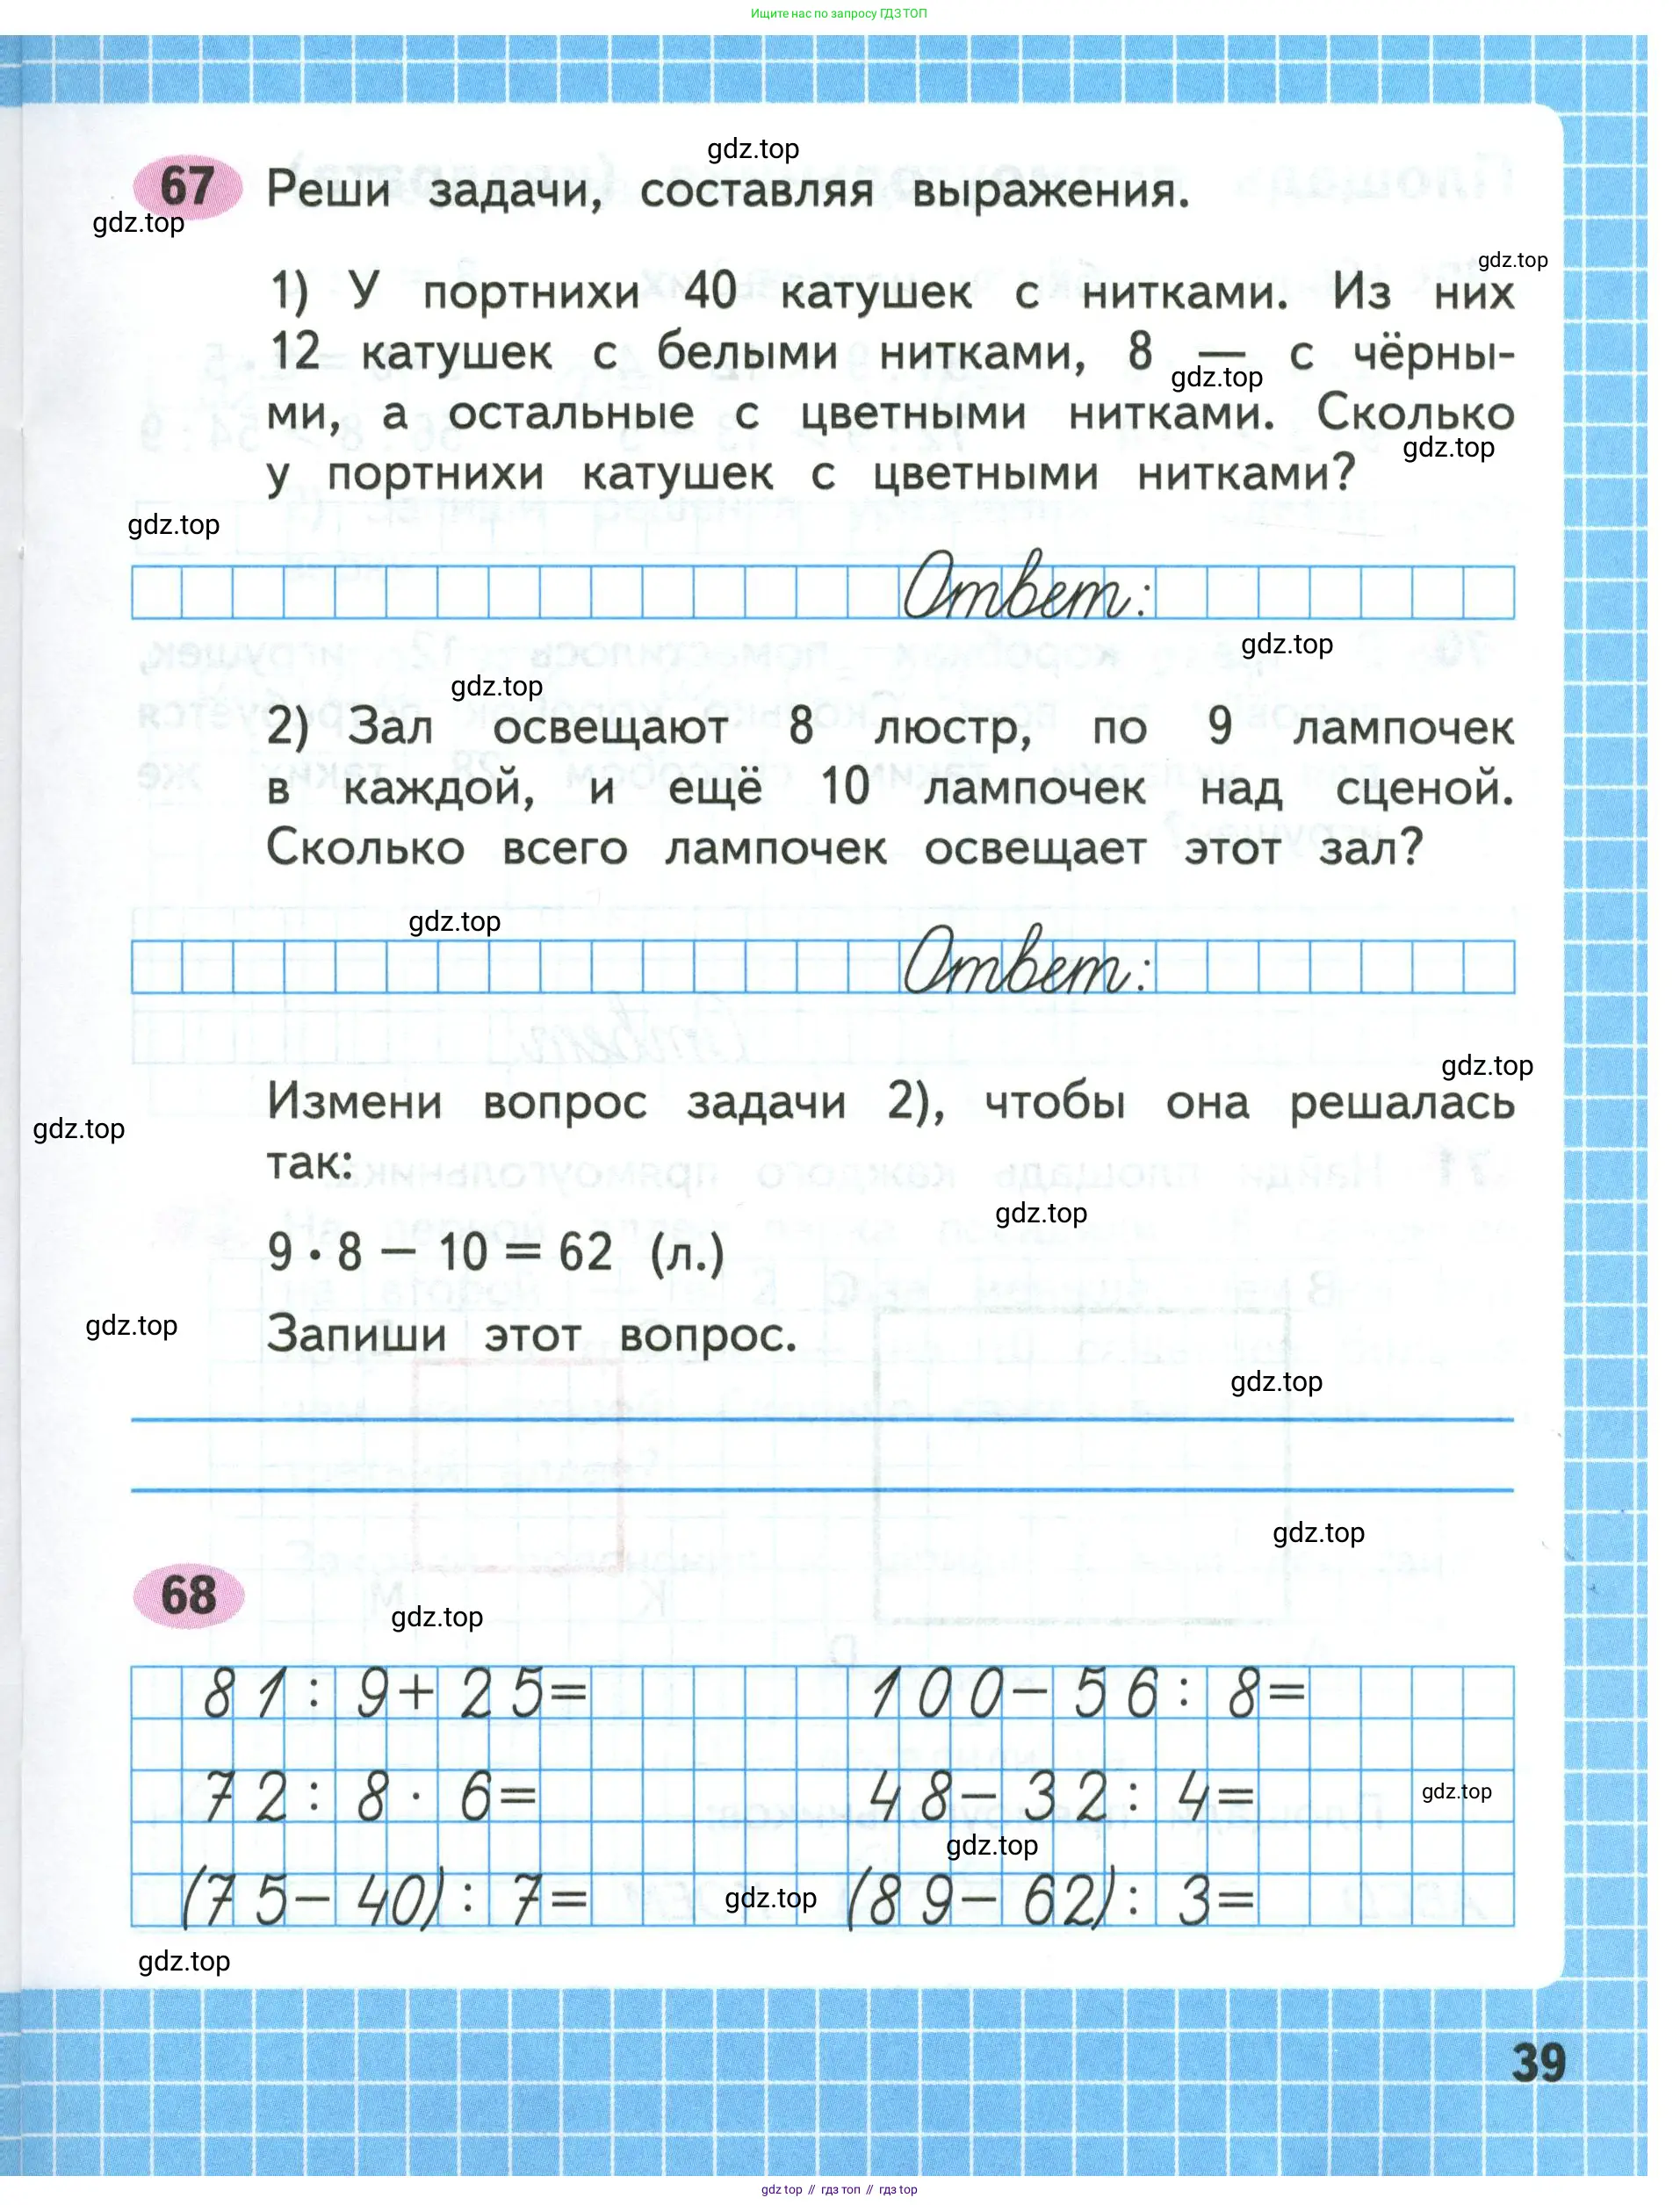 Ищите нас по запросу ГДЗ ТОП
gdz.top
67 Реши задачи, составляя выражения.
gdz.top
gdz.top
1) У портнихи 40 катушек с нитками. Из них
12 катушек с белыми нитками, 8 — с чёрны-
gdz.top
ми, а остальные с цветными нитками. Сколько
gdz.top
у портнихи катушек с цветными нитками?
gdz.top
Ответ:
gdz.top
gdz.top
2) Зал освещают 8 люстр, по 9 лампочек
в каждой, и ещё 10 лампочек над сценой.
Сколько всего лампочек освещает этот зал?
gdz.top
Ответ:
gdz.top
Измени вопрос задачи 2), чтобы она решалась
gdz.top
так:
gdz.top
9 · 8 − 10 = 62 (л.)
gdz.top
Запиши этот вопрос.
gdz.top
gdz.top
68
gdz.top
81 : 9 + 25 = 100 − 56 : 8 =
72 : 8 · 6 = 48 − 32 : 4 =
gdz.top
gdz.top
(75 − 40) : 7 = (89 − 62) : 3 =
gdz.top
gdz.top
39
gdz top // гдз топ // gdz top